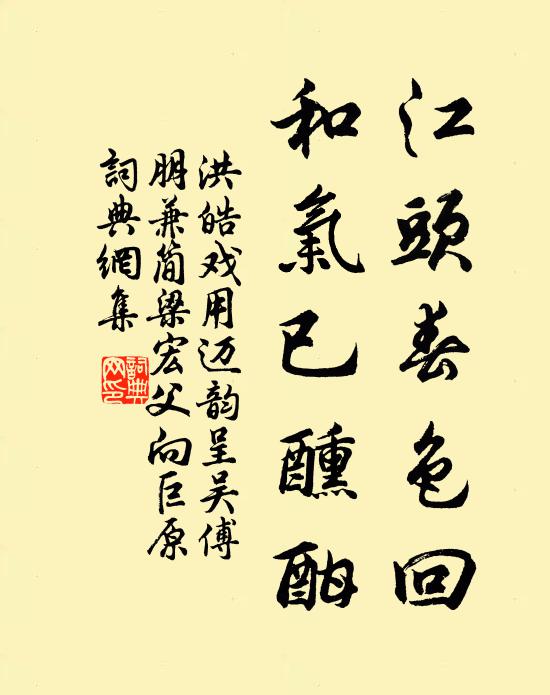 江頭春色回
和氣已醺酣
洪皓戏用迈韵呈吴傅
朋兼简梁宏父向巨原
詞典網集
詞典网印